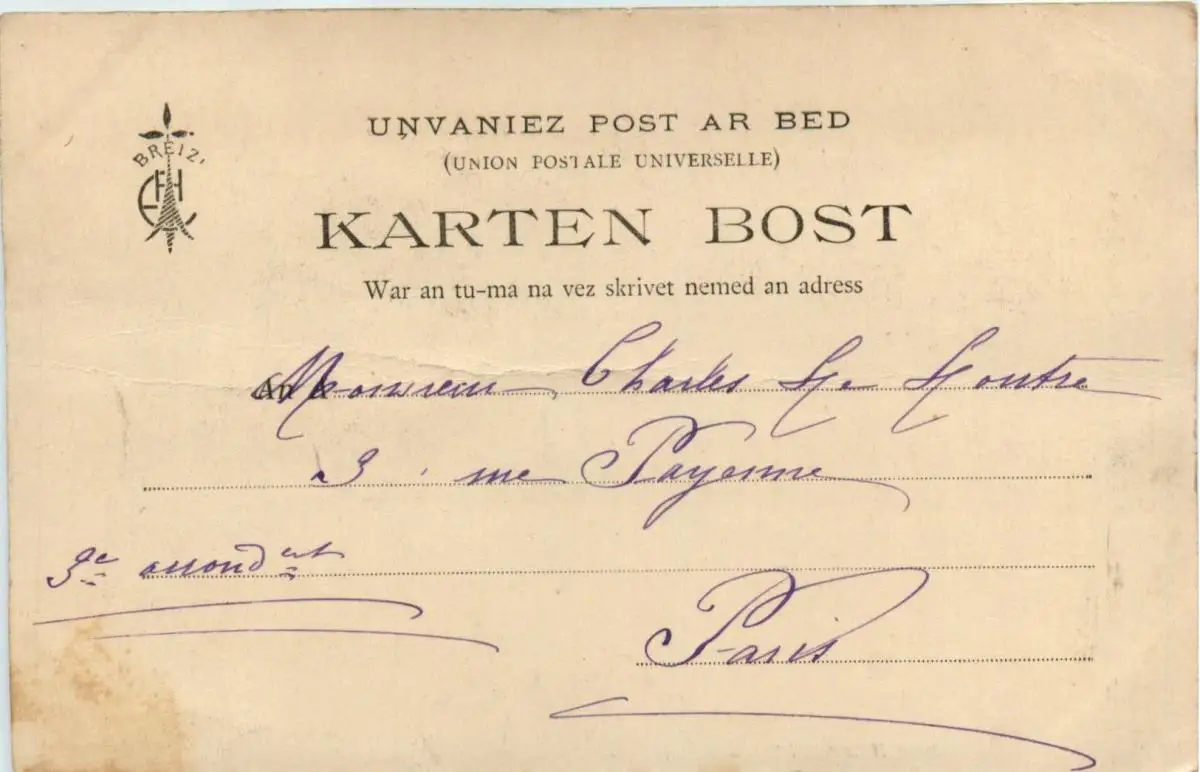 BREIZ'
UNVANIEZ POST AR BED
(UNION POSTALE UNIVERSELLE)
KARTEN BOST
War an tu-ma na vez skrivet nemed an adress
Monsieur Charles Le
3 rue Payenne
3e arrondt
Paris